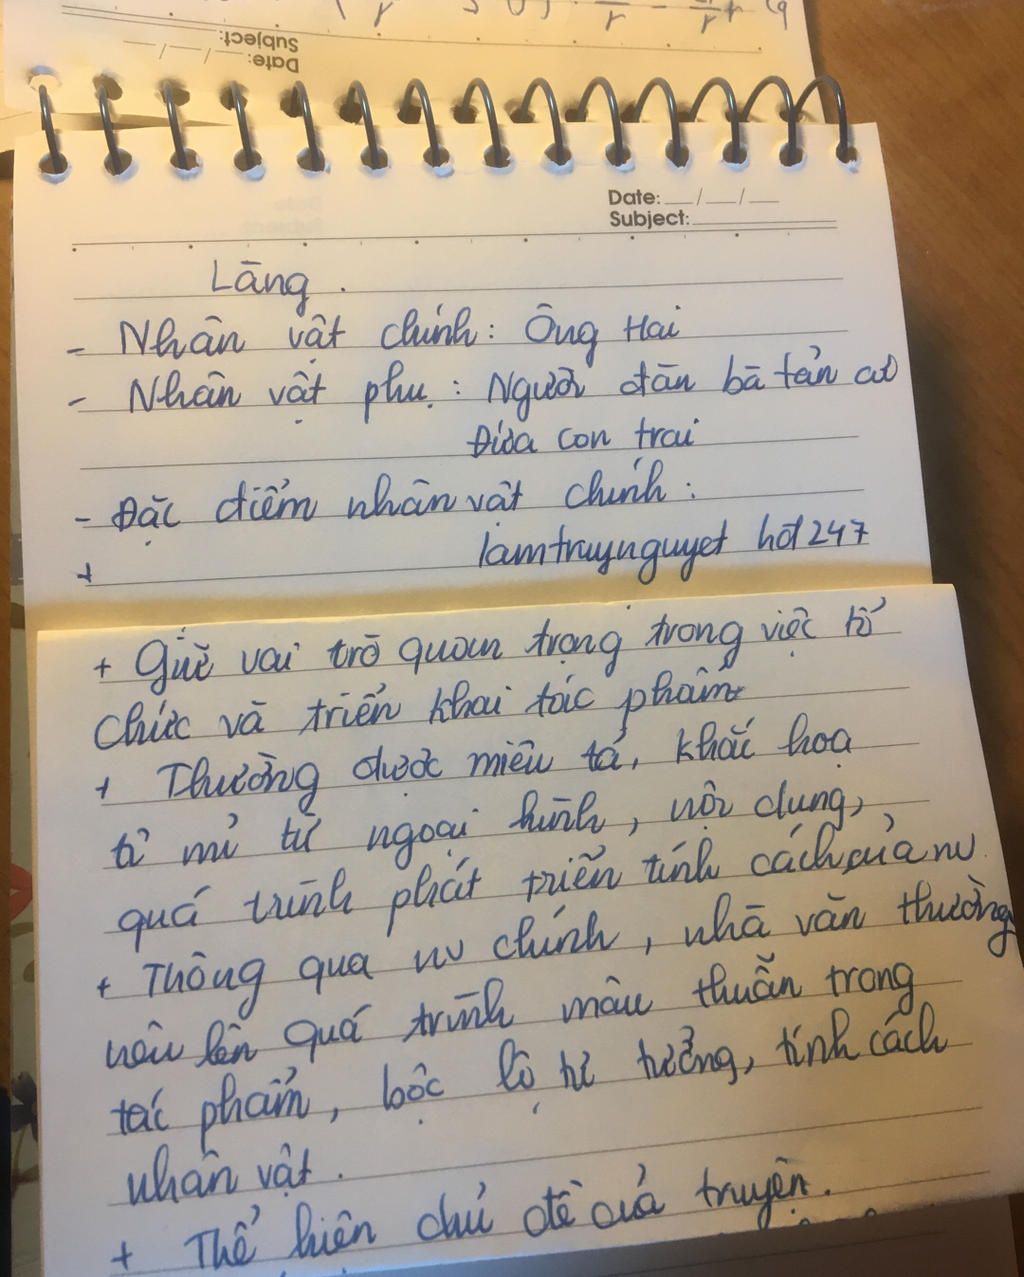 Date: __/__/__
Subject:
Date: __/__/__
Subject:
Làng.
- Nhân vật chính: Ông Hai
- Nhân vật phụ: Người đàn bà tản cư
Đứa con trai
- Đặc điểm nhân vật chính:
+ lamtruynguyet hđ247
+ Giữ vai trò quan trọng trong việc tổ
chức và triển khai tác phẩm
+ Thường được miêu tả, khắc hoạ
tỉ mỉ từ ngoại hình, nội dung,
quá trình phát triển tính cách của nv
+ Thông qua nv chính, nhà văn thường
nêu lên quá trình mâu thuẫn trong
tác phẩm, bộc lộ tư tưởng, tính cách
nhân vật.
+ Thể hiện chủ đề của truyện.